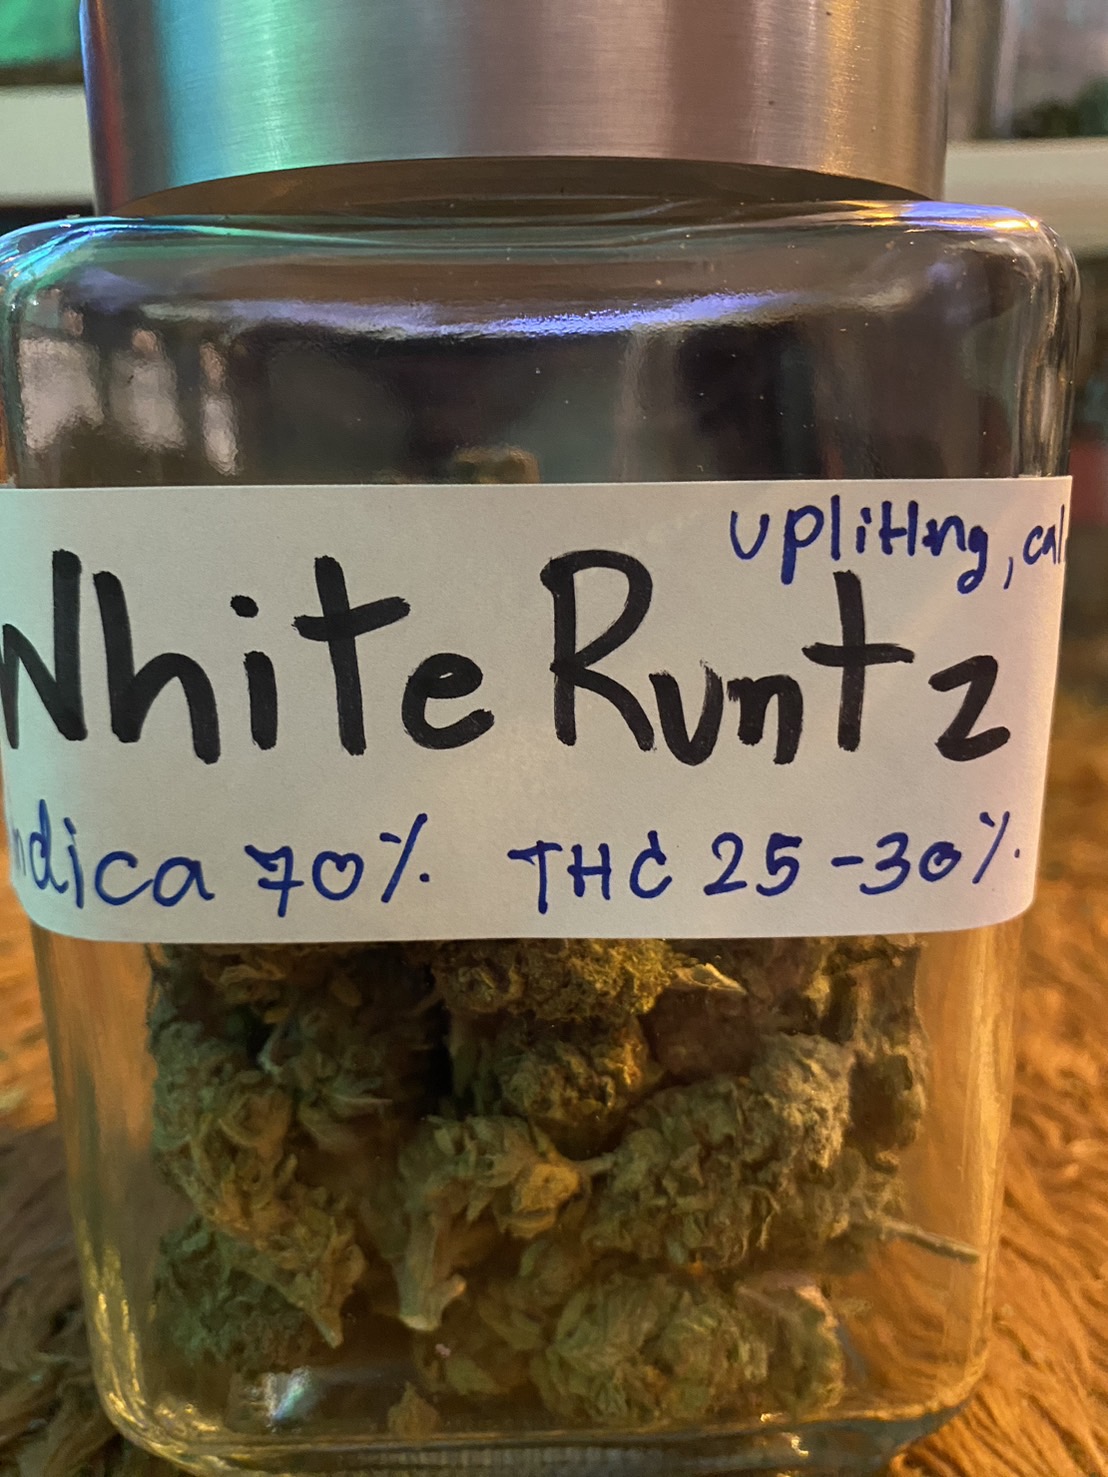 uplifting, cal
White Runtz
ndica 70% THC 25-30%